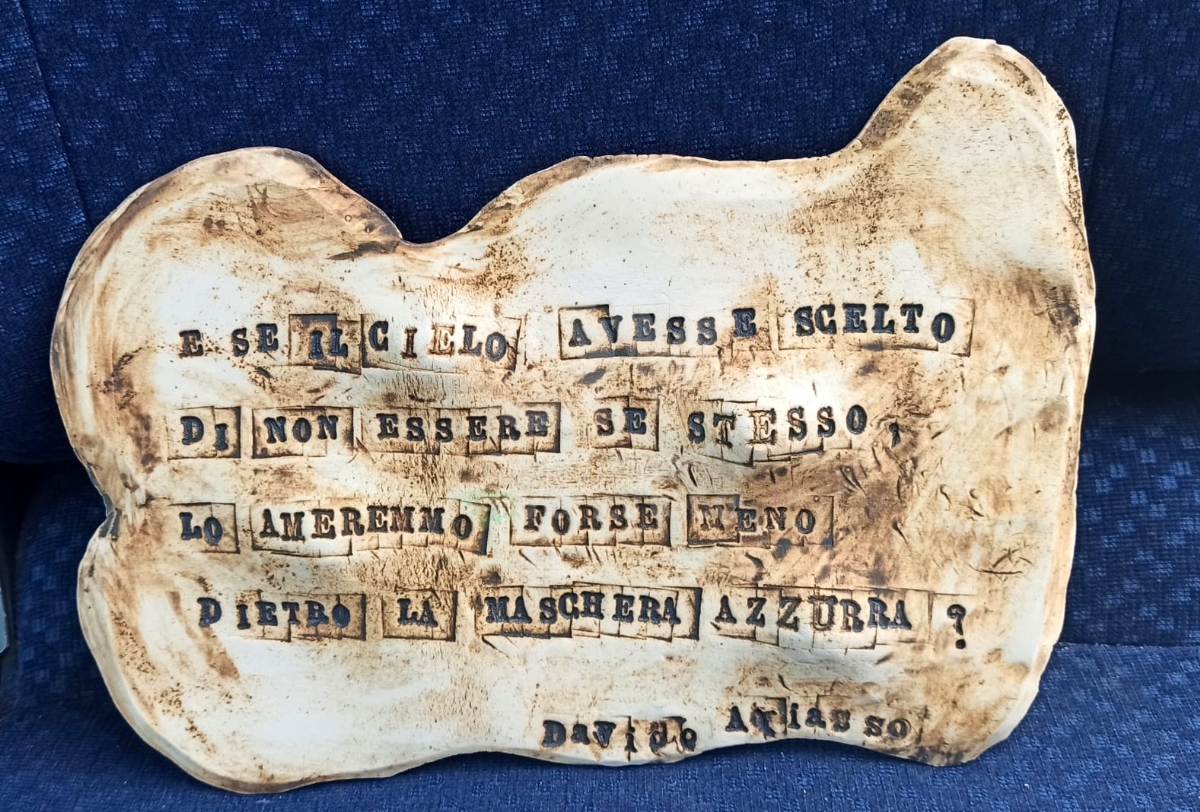 E SE IL CIELO AVESSE SCELTO
DI NON ESSERE SE STESSO,
LO AMEREMMO FORSE MENO
DIETRO LA MASCHERA AZZURRA ?
Davide